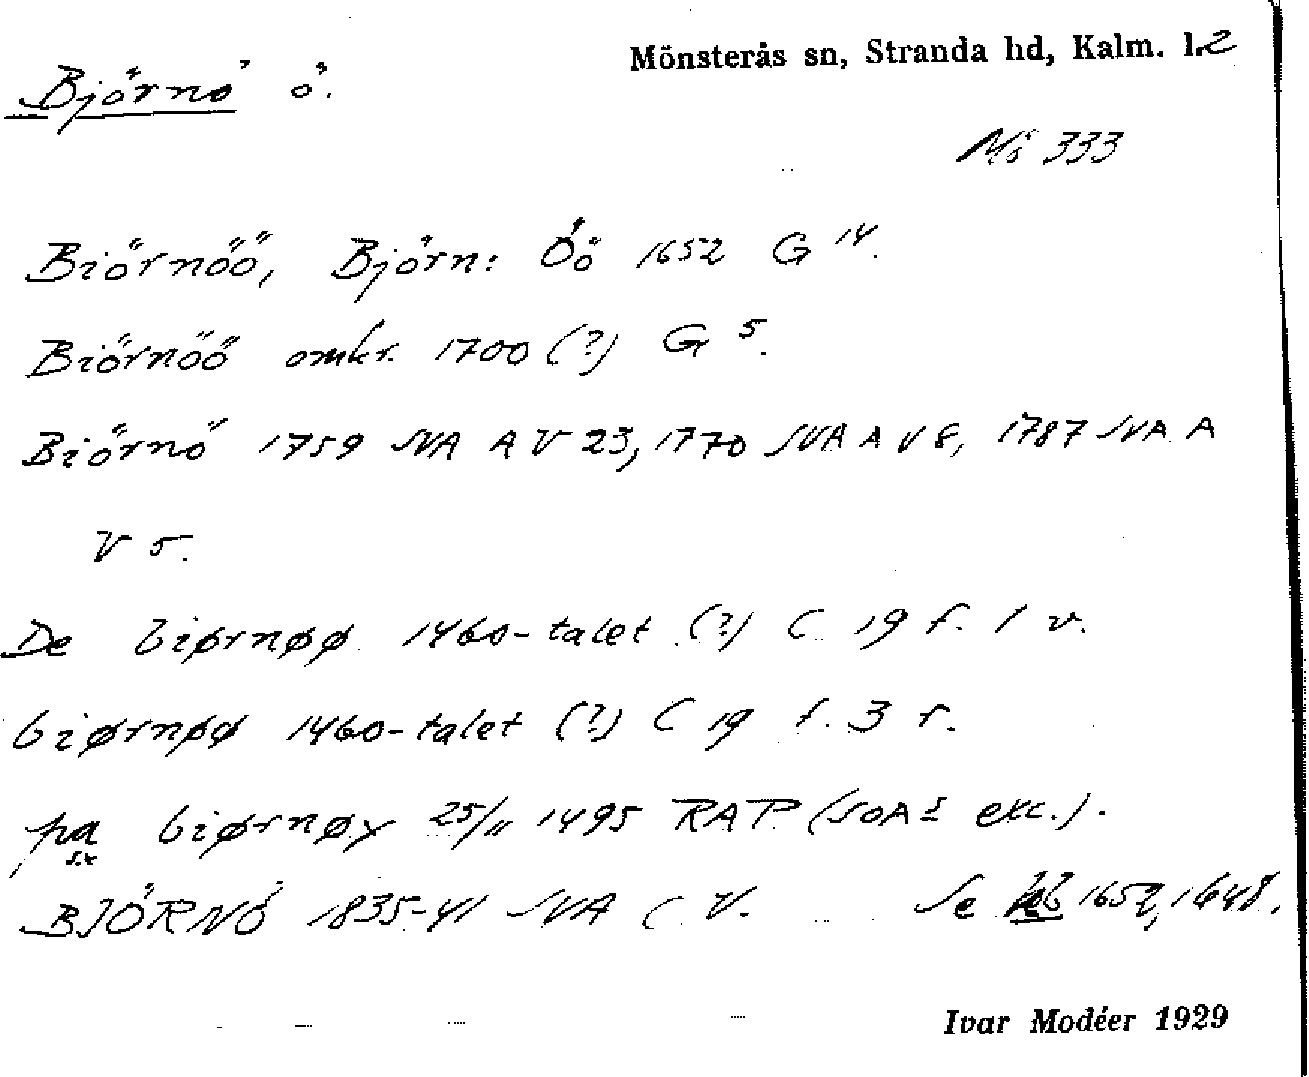 Mönsterås sn, Stranda hd, Kalm. l. 2
Björnö ö.
Mö 333
Biörnöö, Björn: Öö 1652 G 14.
Biörnöö omkr. 1700 (?) G 5.
Biörnö 1759 SVA A V 23, 1770 SVA A V 8, 1787 SVA A
V 5.
De biørnøø 1460-talet (?) C 19 f. 1 v.
biørnøø 1460-talet (?) C 19 f. 3 r.
pa biørnøy 25/11 1495 RAP (SOA:s exc.).
BJÖRNÖ 1835-41 SVA C V. Se 1652, 1648.
Ivar Modéer 1929